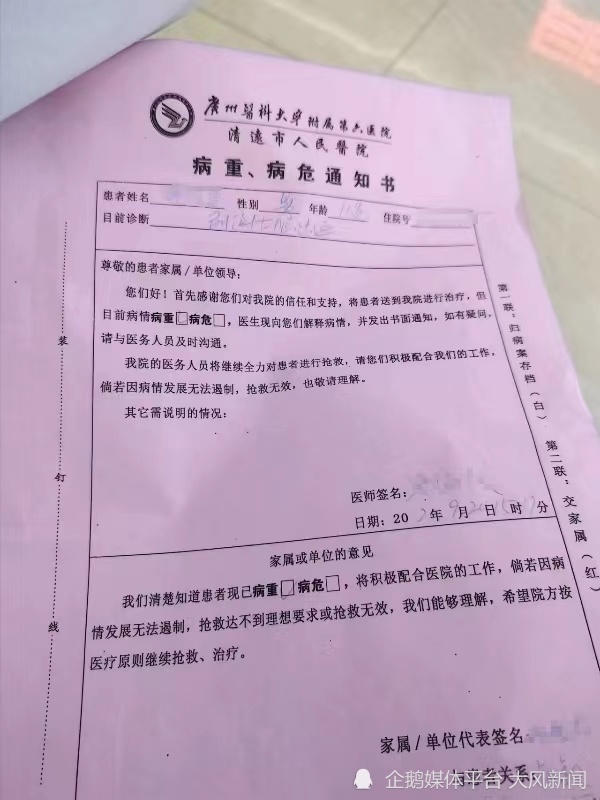 广州医科大学附属第六医院
清远市人民医院
病重、病危通知书
患者姓名 性别 男 年龄 住院号
目前诊断
尊敬的患者家属/单位领导:
您们好!首先感谢您们对我院的信任和支持,将患者送到我院进行治疗,但
目前病情病重□病危□,医生现向您们解释病情,并发出书面通知,如有疑问,
请与医务人员及时沟通。
我院的医务人员将继续全力对患者进行抢救,请您们积极配合我们的工作,
倘若因病情发展无法遏制,抢救无效,也敬请理解。
其它需说明的情况:
医师签名:
日期:20 年 月 日 时 分
家属或单位的意见
我们清楚知道患者现已病重□病危□,将积极配合医院的工作,倘若因病
情发展无法遏制,抢救达不到理想要求或抢救无效,我们能够理解,希望院方按
医疗原则继续抢救、治疗。
家属/单位代表签名
与患者关系
装
钉
线
第一联:归病案存档(白)
第二联:交家属(红)
企鹅媒体平台 大风新闻